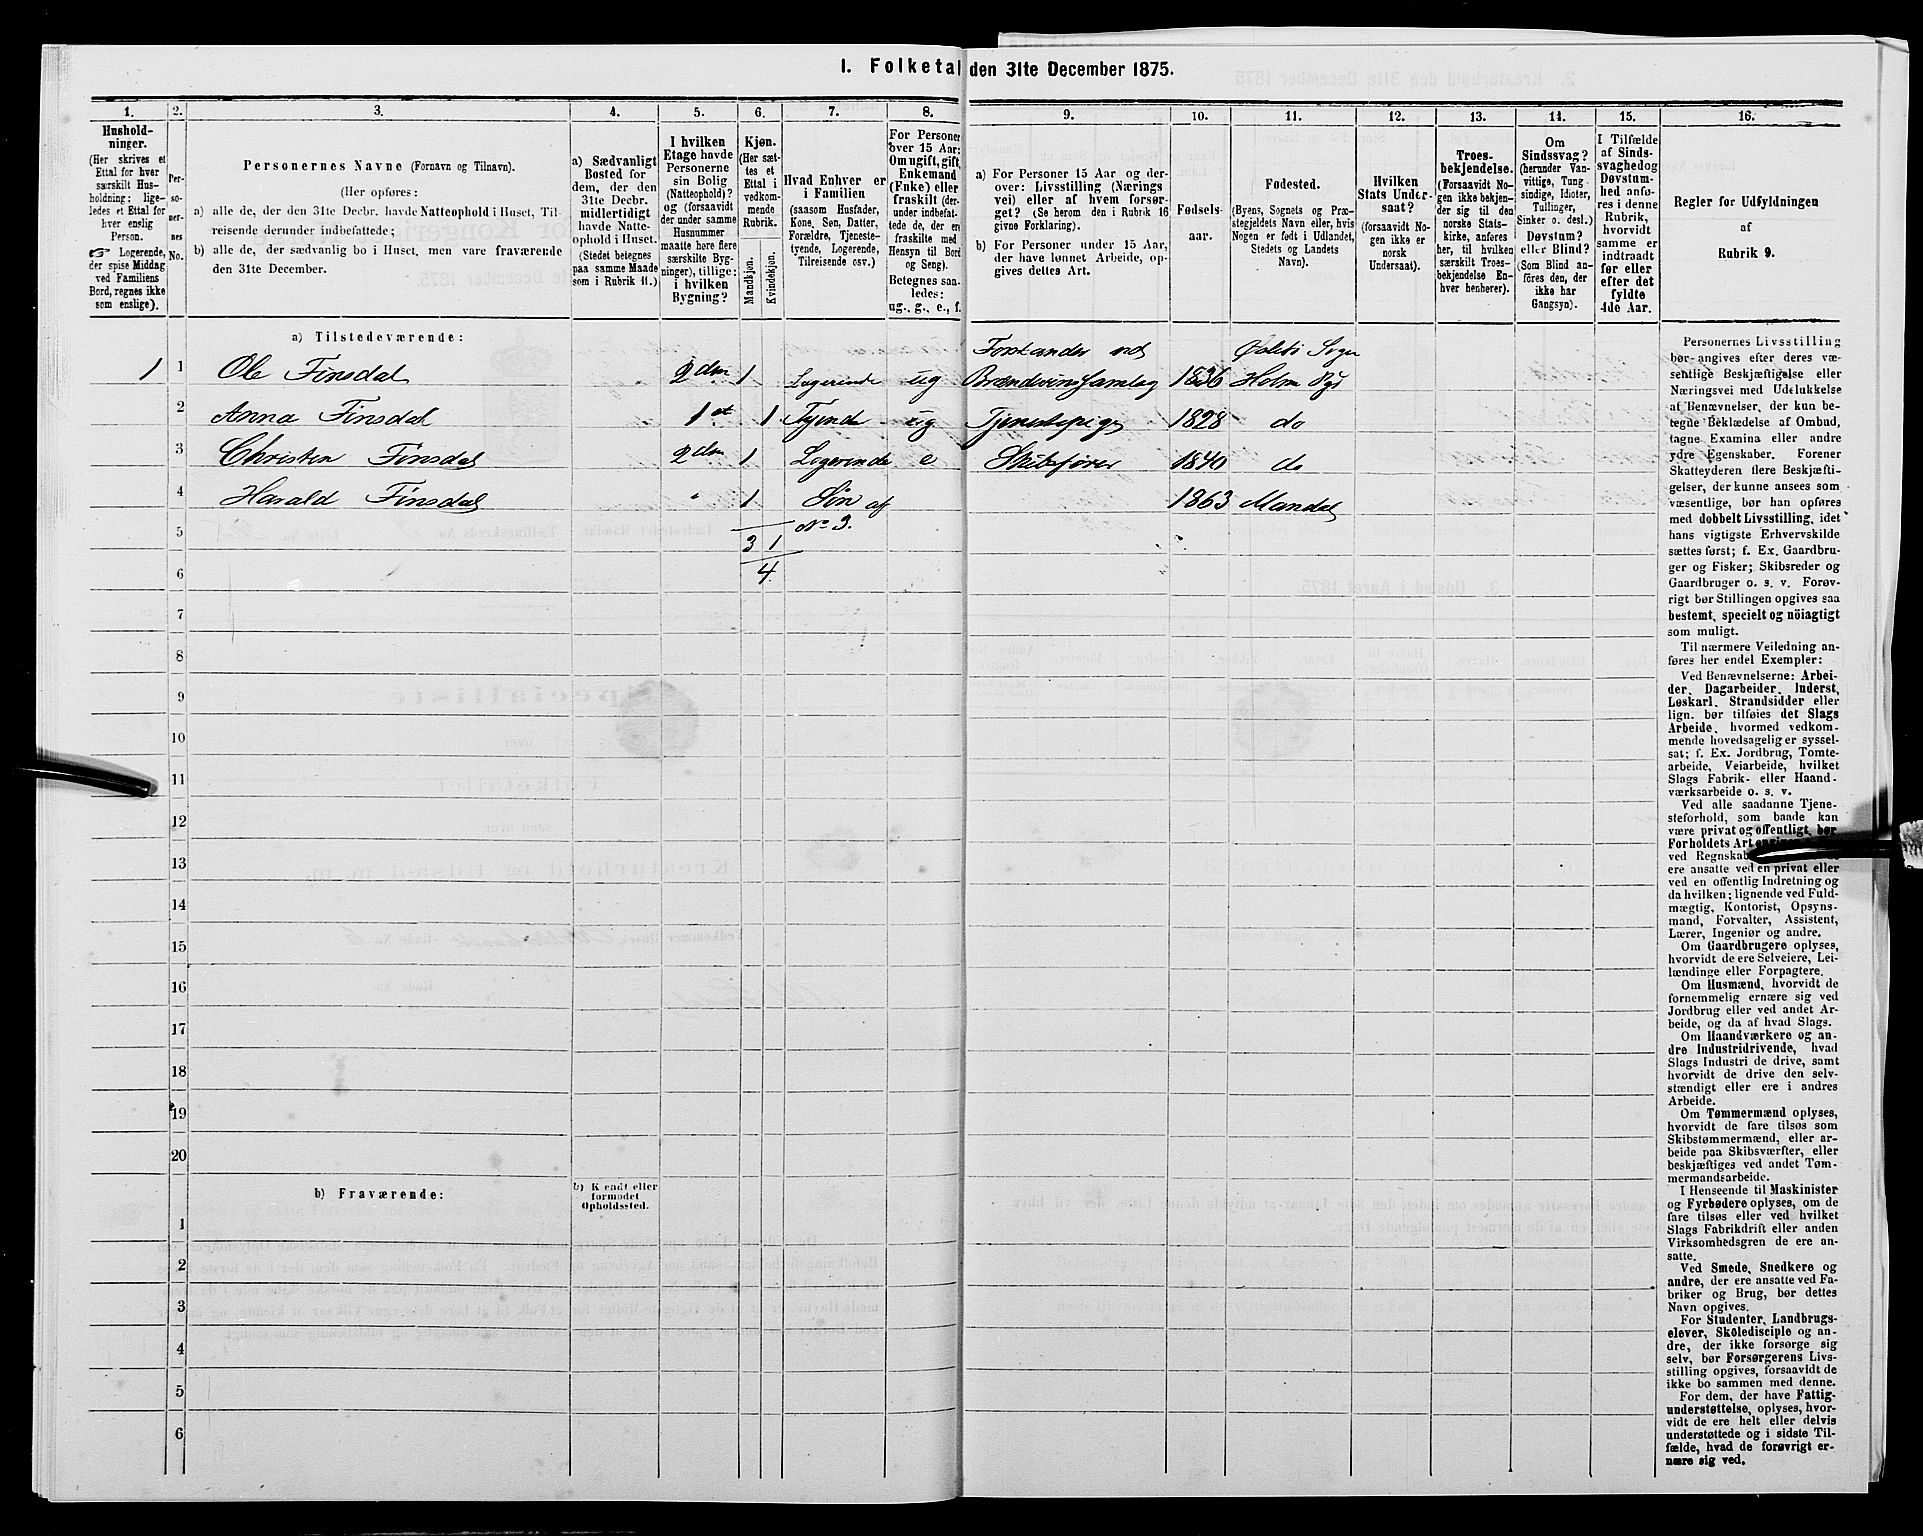 1. Folketal den 31te December 1875.
1. 2. 3. 4. 5. 6. 7. 8. 9. 10. 11. 12. 13. 14. 15. 16.
Hushold-
ninger.
(Her skrives et
Ettal for hver
særskilt Hus-
holdning; lige-
ledes et Ettal for
hver enslig
Person.
☞ Logerende,
der spise Middag
ved Familiens
Bord, regnes ikke
som enslige).
Per-
so-
ner-
nes
No.
Personernes Navne (Fornavn og Tilnavn).
(Her opføres:
a) alle de, der den 31te Decbr. havde Natteophold i Huset, Til-
reisende derunder indbefattede;
b) alle de, der sædvanlig bo i Huset, men vare fraværende
den 31te December.
a) Sædvanligt
Bosted for
dem, der den
31te Decbr.
midlertidigt
havde Natte-
ophold i Huset.
(Stedet betegnes
paa samme Maade
som i Rubrik 11.)
I hvilken
Etage havde
Personerne
sin Bolig
(Natteophold)?
og (forsaavidt
der under samme
Husnummer
maatte høre flere
særskilte Byg-
ninger), tillige:
i hvilken
Bygning?
Kjøn.
(Her sæt-
tes et
Ettal i
vedkom-
mende
Rubrik.
Mandkjøn.
Kvindekjøn.
Hvad Enhver er
i Familien
(saasom Husfader,
Kone, Søn, Datter,
Forældre, Tjeneste-
tyende, Logerende,
Tilreisende osv.)
For Personer
over 15 Aar:
Om ugift, gift,
Enkemand
(Enke) eller
fraskilt (der-
under indbefat-
tede de, der ere
fraskilte med
Hensyn til Bord
og Seng).
Betegnes saa-
ledes:
ug., g., e., f.
a) For Personer 15 Aar og der-
over: Livsstilling (Nærings
vei) eller af hvem forsør-
get? (Se herom den i Rubrik 16
givne Forklaring).
b) For Personer under 15 Aar,
der have lønnet Arbeide, op-
gives dettes Art.
Fødsels-
aar.
Fødested.
(Byens, Sognets og Præ-
stegjeldets Navn eller, hvis
Nogen er født i Udlandet,
Stedets og Landets
Navn).
Hvilken
Stats Under-
saat?
(forsaavidt No-
gen ikke er
norsk
Undersaat).
Troes-
bekjendelse.
(Forsaavidt No-
gen ikke bekjen-
der sig til den
norske Stats-
kirke, anføres
her, til hvilken
særskilt Troes-
bekjendelse En-
hver henhører).
Om
Sindssvag?
(herunder Van-
vittige, Tung
sindige, Idioter,
Tullinger,
Sinker o. desl.)
Døvstum?
eller Blind?
(Som Blind an-
føres den, der
ikke har
Gangsyn).
I Tilfælde
af Sinds-
svaghed og
Døvstum-
hed anfø-
res i denne
Rubrik,
hvorvidt
samme er
indtraadt
før eller
efter det
fyldte
4de Aar.
Regler for Udfyldningen
af
Rubrik 9.
a) Tilstedeværende:
Forstander ved Øslebø Sogn
1 1 Ole Finsdal 2den 1 Logerende ug Brændevinssamlag 1836 Holm Pgd
2 Anna Finsdal 1st 1 Tyende ug Tjenestepige 1828 do
3 Christen Finsdal 2den 1 Logerende e Skibsfører 1840 do
4 Harald Finsdal " 1 Søn af 1863 Mandal
5 3 1 No 3.
6 4.
7
8
9
10
11
12
13
14
15
16
17
18
19
20
b) Fraværende:
b) Kendt eller
formodet
Opholdssted.
1
2
3
4
5
6
Personernes Livsstilling
bør angives efter deres væ-
sentlige Beskjæftigelse eller
Næringsvei med Udelukkelse
af Benævnelser, der kun be-
tegne Beklædelse af Ombud,
tagne Examina eller andre
ydre Egenskaber. Forener
Skatteyderen flere Beskjæfti-
gelser, der kunne ansees som
væsentlige, bør han opføres
med dobbelt Livsstilling, idet
hans vigtigste Erhvervskilde
sættes først; f. Ex. Gaardbru-
ger og Fisker; Skibsreder og
Gaardbruger o. s. v. Forøv-
rigt bør Stillingen opgives saa
bestemt, specielt og nöiagtigt
som muligt.
Til nærmere Veiledning an-
føres her endel Exempler:
Ved Benævnelserne: Arbei-
der, Dagarbeider, Inderst,
Løskarl, Strandsidder eller
lign. bør tilføies det Slags
Arbeide, hvormed vedkom-
mende hovedsagelig er syssel-
sat; f. Ex. Jordbrug, Tomte-
arbeide, Veiarbeide, hvilket
Slags Fabrik- eller Haand-
værksarbeide o. s. v.
Ved alle saadanne Tjene-
steforhold, som baade kan
være privat og offentligt, bør
Forholdets Art
ved
ere ansatte ved en privat eller
ved en offentlig Indretning og
da hvilken; lignende ved Fuld-
mægtig, Kontorist, Opsyns-
mand, Forvalter, Assistent,
Lærer, Ingeniør og andre.
Om Gaardbrugere oplyses,
hvorvidt de ere Selveiere, Lei-
lændinge eller Forpagtere.
Om Husmænd, hvorvidt de
fornemmelig ernære sig ved
Jordbrug eller ved andet Ar-
beide, og da af hvad Slags.
Om Haandværkere og an-
dre Industridrivende, hvad
Slags Industri de drive, samt
hvorvidt de drive den selv-
stændigt eller ere i andres
Arbeide.
Om Tømmermænd oplyses,
hvorvidt de fare tilsøs som
Skibstømmermænd, eller ar-
beide paa Skibsværfter, eller
beskjæftiges ved andet Tøm-
mermandsarbeide.
I Henseende til Maskinister
og Fyrbødere oplyses, om de
fare tilsøs eller ved hvilket
Slags Fabrikdrift eller anden
Virksomhedsgren de ere an-
satte.
Ved Smede, Snedkere og
andre, der ere ansatte ved Fa-
briker og Brug, bør dettes
Navn opgives.
For Studenter, Landbrugs-
elever, Skoledisciple og an-
dre, der ikke forsørge sig
selv, bør Forsørgerens Livs-
stilling opgives, forsaavidt de
ikke bo sammen med denne.
For dem, der have Fattig-
understøttelse, oplyses, hvor-
vidt de ere helt eller delvis
understøttede og i sidste Til-
fælde, hvad de forøvrigt er-
nære sig ved.